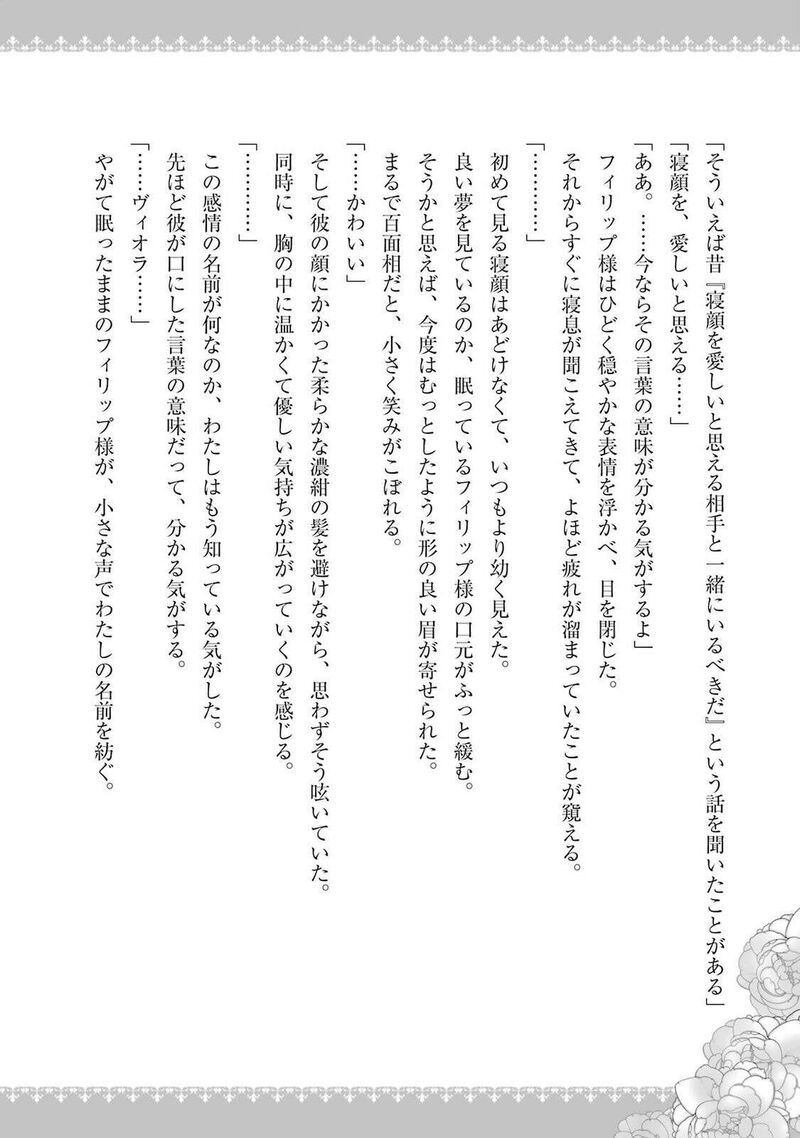 「そういえば昔『寝顔を愛しいと思える相手と一緒にいるべきだ』という話を聞いたことがある」
「寝顔を、愛しいと思える……」
「ああ。……今ならその言葉の意味が分かる気がするよ」
フィリップ様はひどく穏やかな表情を浮かべ、目を閉じた。
それからすぐに寝息が聞こえてきて、よほど疲れが溜まっていたことが窺える。
「…………」
初めて見る寝顔はあどけなくて、いつもより幼く見えた。
良い夢を見ているのか、眠っているフィリップ様の口元がふっと緩む。
そうかと思えば、今度はむっとしたように形の良い眉が寄せられた。
まるで百面相だと、小さく笑みがこぼれる。
「……かわいい」
そして彼の顔にかかった柔らかな濃紺の髪を避けながら、思わずそう呟いていた。
同時に、胸の中に温かくて優しい気持ちが広がっていくのを感じる。
「…………」
この感情の名前が何なのか、わたしはもう知っている気がした。
先ほど彼が口にした言葉の意味だって、分かる気がする。
「……ヴィオラ……」
やがて眠ったままのフィリップ様が、小さな声でわたしの名前を紡ぐ。